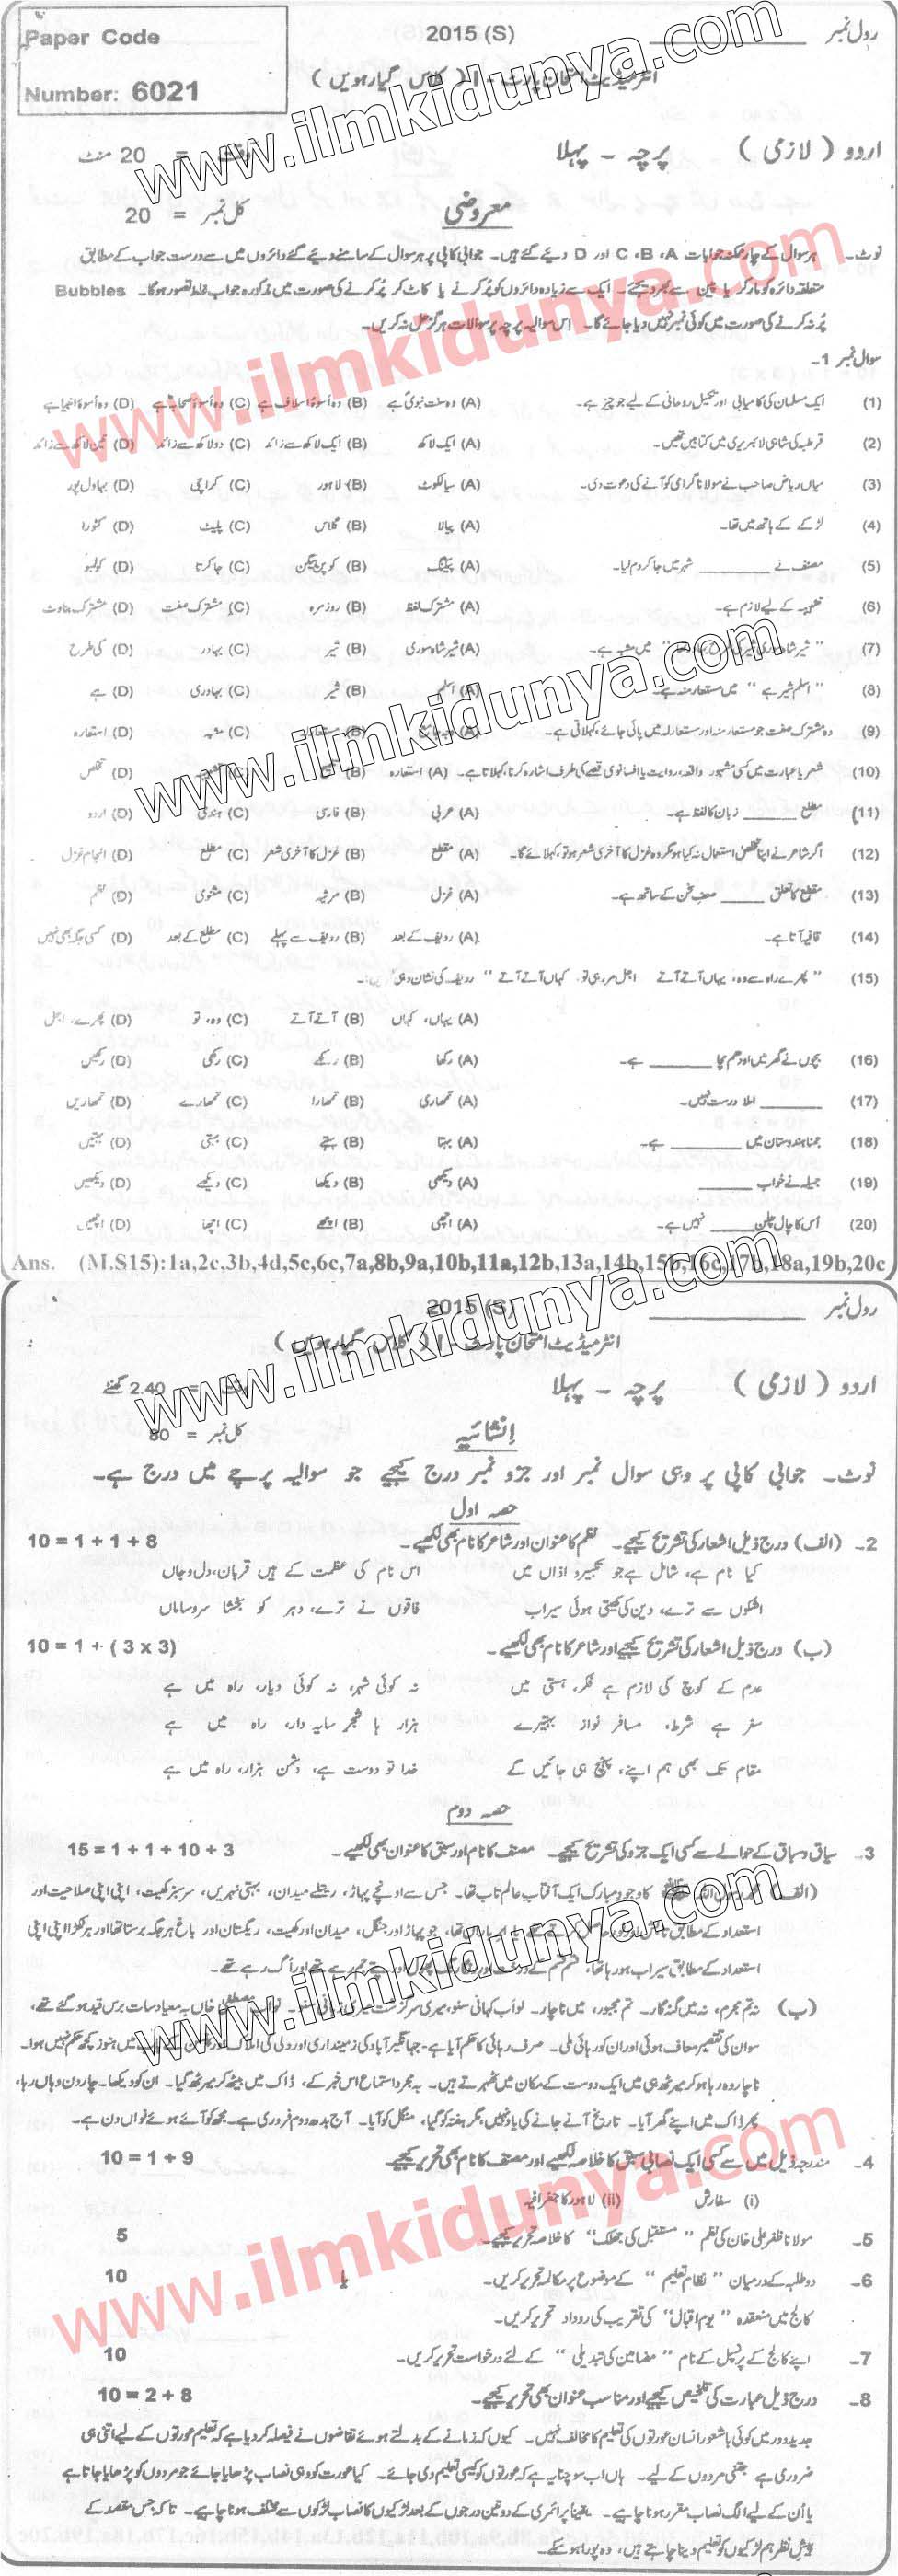 Paper Code
Number: 6021
2015 (S)
رول نمبر
انٹرمیڈیٹ امتحان پارٹ - I ( کلاس گیارہویں )
اردو ( لازمی ) پرچہ - پہلا وقت = 20 منٹ
معروضی کل نمبر = 20
نوٹ۔ ہر سوال کے چار ممکنہ جوابات C ، B ، A اور D دیئے گئے ہیں۔ جوابی کاپی پر ہر سوال کے سامنے دیئے گئے دائروں میں سے درست جواب کے مطابق
متعلقہ دائرہ کو مارکر یا پین سے بھر دیجئے۔ ایک سے زیادہ دائروں کو پُر کرنے یا کاٹ کر پُر کرنے کی صورت میں مذکورہ جواب غلط تصور ہوگا۔ Bubbles
پُر نہ کرنے کی صورت میں کوئی نمبر نہیں دیا جائے گا۔ اس سوالیہ پرچہ پر سوالات ہرگز حل نہ کریں۔
سوال نمبر 1۔
(1) ایک مسلمان کی کامیابی اور تکمیل روحانی کے لیے جو چیز ہے۔ (A) وہ سنت نبویؐ ہے (B) وہ اسوۂ اسلاف ہے (C) وہ اسوۂ صحابہؓ ہے (D) وہ اسوۂ انبیاؑ ہے
(2) قرطبہ کی شاہی لائبریری میں کتابیں تھیں۔ (A) ایک لاکھ (B) ایک لاکھ سے زائد (C) دو لاکھ سے زائد (D) تین لاکھ سے زائد
(3) میاں ریاض صاحب نے مولانا گرامی کو آنے کی دعوت دی۔ (A) سیالکوٹ (B) لاہور (C) کراچی (D) بہاول پور
(4) لڑکے کے ہاتھ میں تھا۔ (A) پیالا (B) گلاس (C) پلیٹ (D) کٹورا
(5) مصنف نے ______ شہر میں جا کر دم لیا۔ (A) پیکنگ (B) کوپن ہیگن (C) جاکرتا (D) کولمبو
(6) تشبیہ کے لیے لازم ہے۔ (A) مشترک لفظ (B) روزمرہ (C) مشترک صفت (D) مشترک بناوٹ
(7) " شیر شاہ سوری شیر کی طرح بہادر تھا " میں مشبہ ہے۔ (A) شیر شاہ سوری (B) شیر (C) بہادر (D) کی طرح
(8) " اسلم شیر ہے " میں مستعار منہ ہے۔ (A) اسلم (B) شیر (C) بہادری (D) ہے
(9) وہ مشترک صفت جو مستعار منہ اور مستعار لہ میں پائی جائے، کہلاتی ہے۔ (A) وجہ جامع (B) مستعار لہ (C) مشبہ (D) استعارہ
(10) شعر یا عبارت میں کسی مشہور واقعہ، روایت یا افسانوی قصے کی طرف اشارہ کرنا، کہلاتا ہے۔ (A) استعارہ (B) (C) (D) تخلص
(11) مطلع ______ زبان کا لفظ ہے۔ (A) عربی (B) فارسی (C) ہندی (D) اردو
(12) اگر شاعر نے اپنا تخلص استعمال نہ کیا ہو گروہ غزل کا آخری شعر ہو تو کہلائے گا۔ (A) مقطع (B) غزل کا آخری شعر (C) مطلع (D) انجام غزل
(13) مقطع کا تعلق ______ صنف سخن کے ساتھ ہے۔ (A) غزل (B) مرثیہ (C) مثنوی (D) نظم
(14) قافیہ آتا ہے۔ (A) ردیف کے بعد (B) ردیف سے پہلے (C) مطلع کے بعد (D) کسی جگہ بھی نہیں
(15) " پھرے راہ سے وہ، یہاں آتے آتے اجل مر رہی تو، کہاں آتے آتے " ردیف کی نشان دہی
(A) یہاں، کہاں (B) آتے آتے (C) وہ، تو (D) پھرے، اجل
(16) بچوں نے گھر میں اودھم مچا ______ ہے۔ (A) رکھا (B) رکھے (C) رکھی (D) رکھیں
(17) ______ املا درست نہیں۔ (A) تمھاری (B) تمھارا (C) تمھارے (D) تمھاریں
(18) جمنا ہندوستان میں ______ ہے۔ (A) بہتا (B) بہتے (C) بہتی (D) بہتیں
(19) جمیلہ نے خواب ______ (A) دیکھی (B) دیکھا (C) دیکھے (D) دیکھیں
(20) اُس کا چال چلن ______ نہیں ہے۔ (A) اچھی (B) اچھے (C) اچھا (D) اچھیں
Ans. (M.S15):1a,2c,3b,4d,5c,6c,7a,8b,9a,10b,11a,12b,13a,14b,15b,16c,17b,18a,19b,20c
2015 (S)
رول نمبر
انٹرمیڈیٹ امتحان پارٹ - I ( کلاس گیارہویں )
اردو ( لازمی ) پرچہ - پہلا وقت = 2.40 گھنٹے
اِنشائیہ کل نمبر = 80
نوٹ۔ جوابی کاپی پر وہی سوال نمبر اور جزو نمبر درج کیجیے جو سوالیہ پرچے میں درج ہے۔
حصہ اول
2۔ (الف) درج ذیل اشعار کی تشریح کیجیے۔ نظم کا عنوان اور شاعر کا نام بھی لکھیے۔ 10 = 1 + 1 + 8
کیا نام ہے، شامل ہے جو تکبیر و اذاں میں اس نام کی عظمت کے ہیں قربان، دل و جاں
اشکوں سے ترے، دین کی کھیتی ہوئی سیراب فاقوں نے ترے، دہر کو بخشا سر و ساماں
(ب) درج ذیل اشعار کی تشریح کیجیے اور شاعر کا نام بھی لکھیے۔ 10 = 1 + ( 3 x 3)
عدم کے کوچ کی لازم ہے فکر، ہستی میں نہ کوئی شہر، نہ کوئی دیار، راہ میں ہے
سفر ہے شرط، مسافر نواز بہتیرے ہزار ہا شجر سایہ دار، راہ میں ہے
مقام تک بھی ہم اپنے، پہنچ ہی جائیں گے خدا تو دوست ہے، دشمن ہزار، راہ میں ہے
حصہ دوم
3۔ سیاق و سباق کے حوالے سے کسی ایک جزو کی تشریح کیجیے۔ مصنف کا نام اور سبق کا عنوان بھی لکھیے۔ 15 = 1 + 1 + 10 + 3
(الف) محمد رسول اللہ ﷺ کا وجود مبارک ایک آفتاب عالم تاب تھا۔ جس سے اونچے پہاڑ، ریتلے میدان، بہتی نہریں، سرسبز کھیت، اپنی اپنی صلاحیت اور
استعداد کے مطابق تابش اور نور حاصل کرتے تھے یا ابر باراں تھا، جو پہاڑ اور جنگل، میدان اور کھیت، ریگستان اور باغ ہر جگہ برستا تھا اور ہر ٹکڑا اپنی اپنی
استعداد کے مطابق سیراب ہو رہا تھا، قسم قسم کے درخت اور رنگارنگ پھول اور پتے جم رہے تھے اور اُگ رہے تھے۔
(ب) نہ تم مجرم، نہ میں گنہگار۔ تم مجبور، میں ناچار۔ لو اب کہانی سنو، میری سرگزشت میری زبانی سنو۔ نواب مصطفیٰ خاں بہ میعاد سات برس قید ہو گئے تھے،
سو ان کی تقصیر معاف ہوئی اور ان کو رہائی ملی۔ صرف رہائی کا حکم آیا ہے۔ جہانگیر آباد کی زمینداری اور دلی کی املاک اور پنشن کے باب میں ہنوز کچھ حکم نہیں ہوا۔
ناچار وہ رہا ہو کر میرٹھ ہی میں ایک دوست کے مکان میں ٹھہرے ہیں۔ بہ مجرد استماع اس خبر کے، ڈاک میں بیٹھ کر میرٹھ گیا۔ ان کو دیکھا۔ چار دن وہاں رہا،
پھر ڈاک میں اپنے گھر آیا۔ تاریخ آنے جانے کی یاد نہیں، مگر ہفتہ کو گیا، منگل کو آیا۔ آج بدھ دوم فروری ہے۔ مجھ کو آئے ہوئے نواں دن ہے۔
4۔ مندرجہ ذیل میں سے کسی ایک نصابی سبق کا خلاصہ لکھیے اور مصنف کا نام بھی تحریر کیجیے۔ 10 = 1 + 9
(i) سفارش (ii) لاہور کا جغرافیہ
5۔ مولانا ظفر علی خان کی نظم " مستقبل کی جھلک " کا خلاصہ تحریر کیجیے۔ 5
6۔ دو طلبہ کے درمیان " نظام تعلیم " کے موضوع پر مکالمہ تحریر کریں۔ یا 10
کالج میں منعقدہ " یوم اقبال " کی تقریب کی روداد تحریر کریں۔
7۔ اپنے کالج کے پرنسپل کے نام " مضامین کی تبدیلی " کے لئے درخواست تحریر کریں۔ 10
8۔ درج ذیل عبارت کی تلخیص کیجیے اور مناسب عنوان بھی تحریر کیجیے۔ 10 = 2 + 8
جدید دور میں کوئی باشعور انسان عورتوں کی تعلیم کا مخالف نہیں۔ کیوں کہ زمانے کے بدلتے ہوئے تقاضوں نے فیصلہ کر دیا ہے کہ تعلیم عورتوں کے لیے اتنی ہی
ضروری ہے جتنی مردوں کے لیے۔ ہاں اب سوچنا یہ ہے کہ عورتوں کو کیسی تعلیم دی جائے۔ کیا عورت کو وہی نصاب پڑھایا جائے جو مردوں کو پڑھایا جاتا ہے
یا اُن کے لیے الگ نصاب مقرر ہونا چاہیے۔ یقیناً پرائمری کے دو تین درجوں کے بعد لڑکیوں کا نصاب لڑکوں سے مختلف ہونا چاہیے۔ تاکہ جس مقصد کے
پیش نظر ہم لڑکیوں کو تعلیم دینا چاہتے ہیں، وہ پورا ہو سکے۔
www.ilmkidunya.com